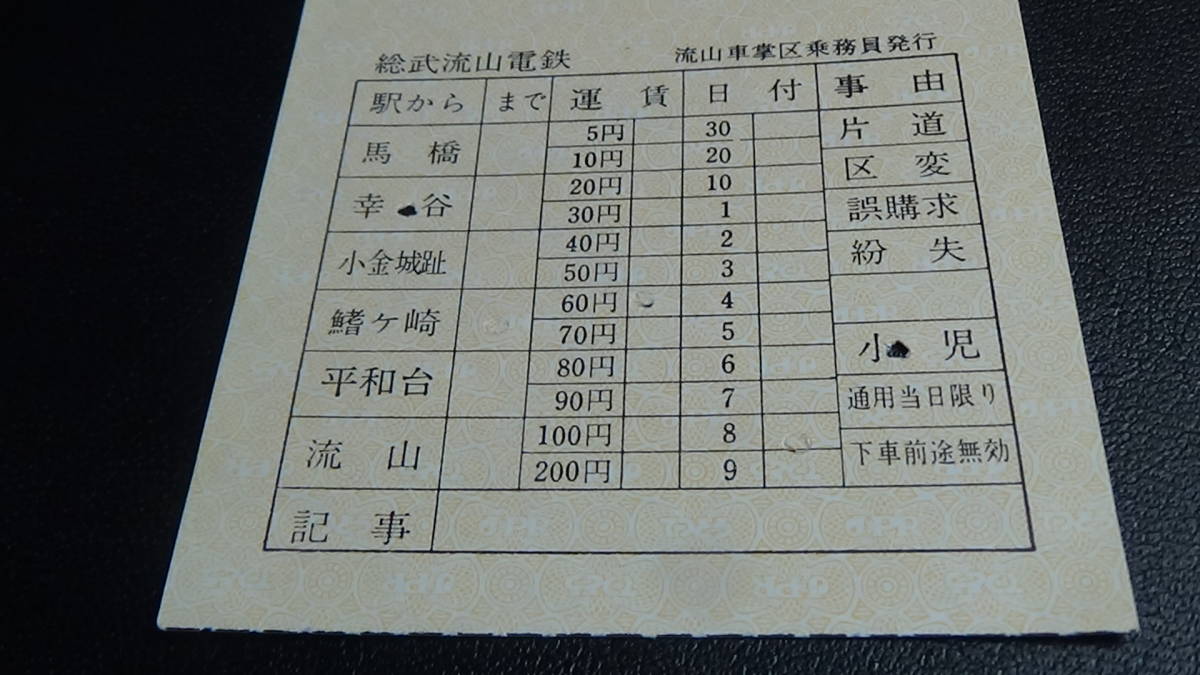 総武流山電鉄 流山車掌区乗務員発行
駅から まで 運賃 日付 事由
馬橋 5円 30 片道
10円 20 区変
幸谷 20円 10 誤購求
30円 1
小金城趾 40円 2 紛失
50円 3
鰭ヶ崎 60円 4
70円 5 小児
平和台 80円 6
90円 7 通用当日限り
流山 100円 8 下車前途無効
200円 9
記事